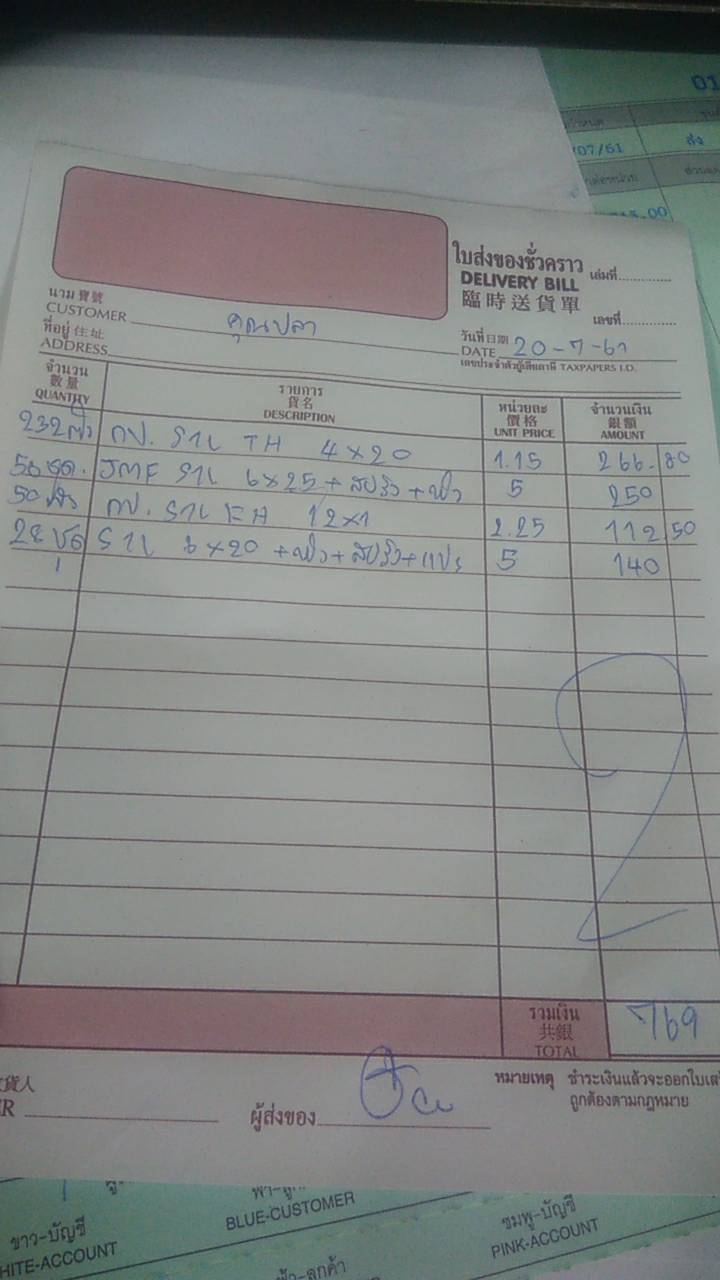 01
07/61
ส่ง
ใบส่งของชั่วคราว
เล่มที่
DELIVERY BILL
臨時送貨單
เลขที่
นาม 寶號
CUSTOMER คุณปลา
ที่อยู่ 住址
ADDRESS
วันที่ 日期
DATE 20-7-61
เลขประจำตัวผู้เสียภาษี TAXPAPERS I.D.
จำนวน 數量 QUANTITY
รายการ 貨名 DESCRIPTION
หน่วยละ 價格 UNIT PRICE
จำนวนเงิน 銀額 AMOUNT
232 กป. TH 4×20 1.15 266.80
50 JMF 6×25+สปริง+ 5 250
50 กป. 12×1 2.25 112 50
28 6×20 + +สปริง+แปร 5 140
รวมเงิน
共銀
TOTAL
769
貨人
R
ผู้ส่งของ
หมายเหตุ ชำระเงินแล้วจะออกใบเส
ถูกต้องตามกฎหมาย
ขาว-บัญชี
HITE-ACCOUNT
BLUE-CUSTOMER
ฟ้า-ลูกค้า
ชมพู-บัญชี
PINK-ACCOUNT